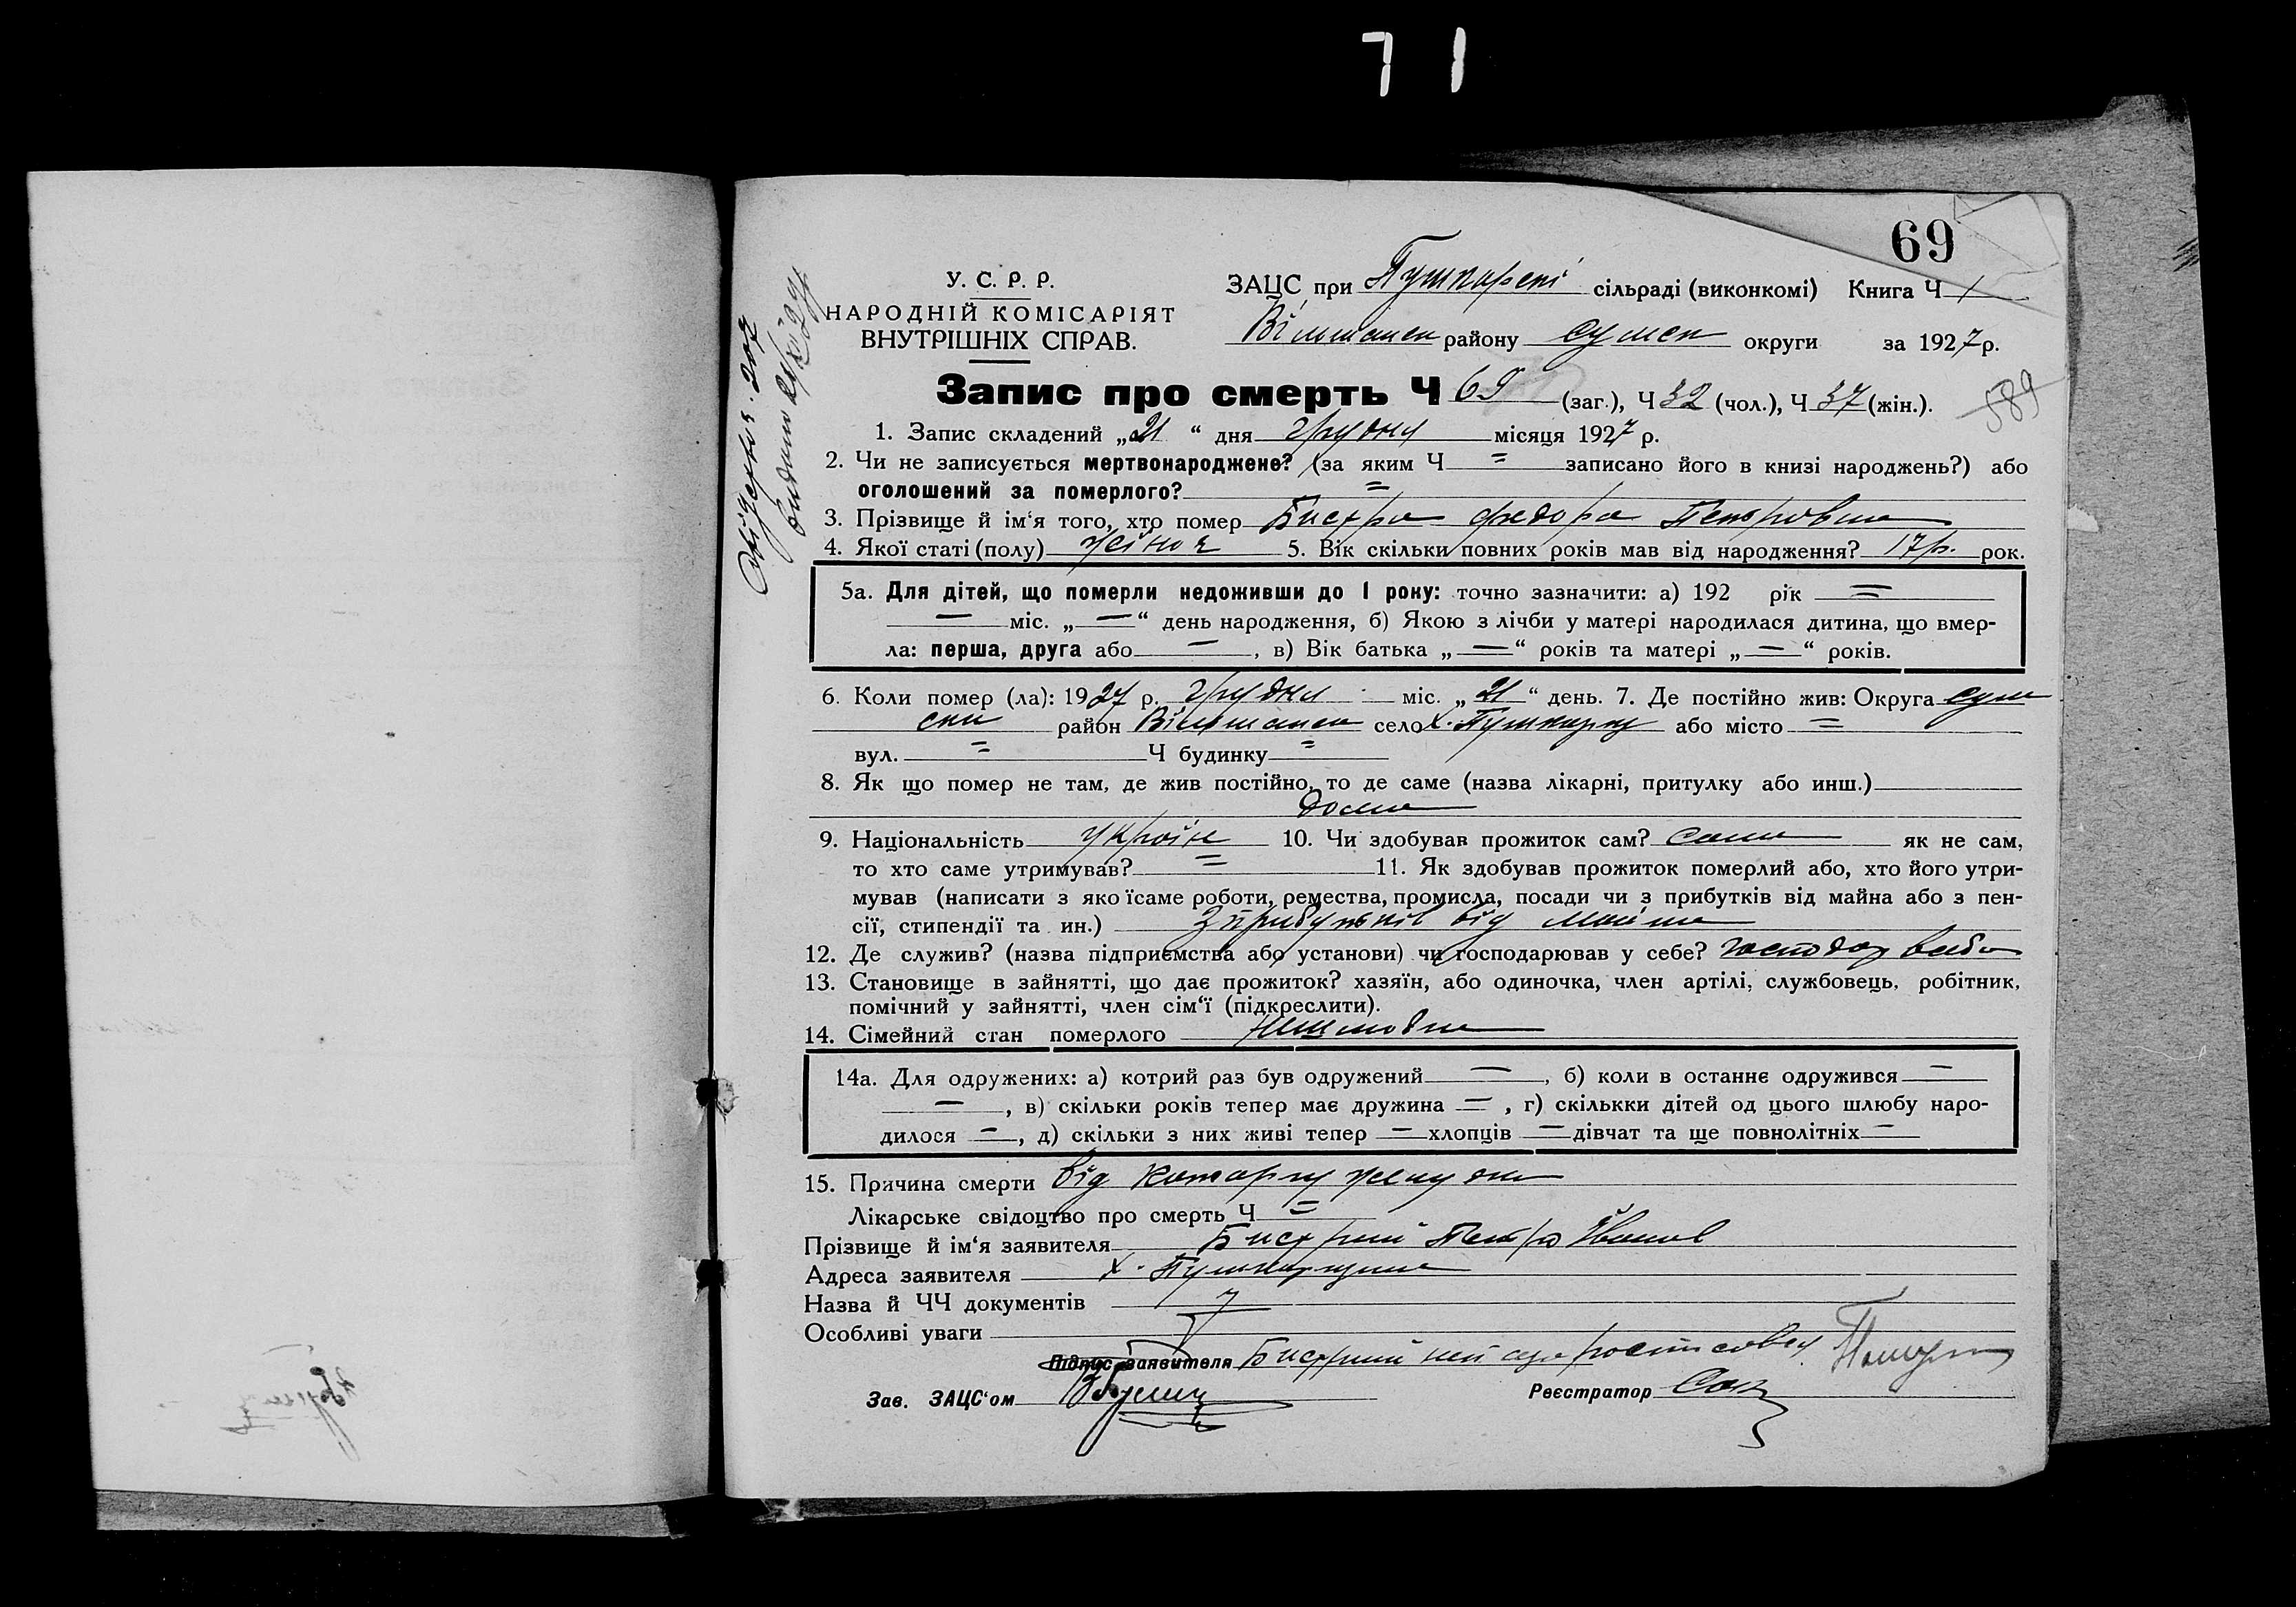 71
69
У. С. Р. Р.
НАРОДНІЙ КОМІСАРІЯТ
ВНУТРІШНІХ СПРАВ.
ЗАЦС при Пушкарскі сільраді (виконкомі) Книга Ч 1
Вільшанск району Сумск округи за 1927 р.
589
Запис про смерть Ч 69 (заг.), Ч 32 (чол.), Ч 37 (жін.).
1. Запис складений „21“ дня грудня місяця 1927 р.
2. Чи не записується мертвонароджене? (за яким Ч = записано його в книзі народжень?) або
оголошений за померлого? =
3. Прізвище й ім'я того, хто помер Бистра Федора Петровна
4. Якої статі (полу) жіноч 5. Вік скільки повних років мав від народження? 17 р. рок.
5а. Для дітей, що померли недоживши до 1 року: точно зазначити: а) 192 рік =
— міс. „—“ день народження, б) Якою з лічби у матері народилася дитина, що вмер-
ла: перша, друга або —, в) Вік батька „—“ років та матері „—“ років.
6. Коли помер (ла): 1927 р. грудня міс. „21“ день. 7. Де постійно жив: Округа Сум
ска район Вільшанск село х. Пушкарку або місто =
вул. = Ч будинку =
8. Як що помер не там, де жив постійно, то де саме (назва лікарні, притулку або инш.)
дома
9. Національність україн 10. Чи здобував прожиток сам? сама як не сам,
то хто саме утримував? = 11. Як здобував прожиток померлий або, хто його утри-
мував (написати з яко їсаме роботи, ремества, промисла, посади чи з прибутків від майна або з пен-
сії, стипендії та ин.) З прибутків від майна
12. Де служив? (назва підприємства або установи) чи господарював у себе? господар
13. Становище в зайнятті, що дає прожиток? хазяїн, або одиночка, член артілі, службовець, робітник,
помічний у зайнятті, член сім'ї (підкреслити).
14. Сімейний стан померлого
14а. Для одружених: а) котрий раз був одружений —, б) коли в останнє одружився —
—, в) скільки років тепер має дружина —, г) скількки дітей од цього шлюбу наро-
дилося —, д) скільки з них живі тепер — хлопців — дівчат та ще повнолітніх —
15. Причина смерти від катару желудка
Лікарське свідоцтво про смерть Ч =
Прізвище й ім'я заявителя Бистрий Петро Іванов
Адреса заявителя х. Пушкарщина
Назва й ЧЧ документів
Особливі уваги
Підпис заявителя Бистрий
Зав. ЗАЦС'ом
Реєстратор